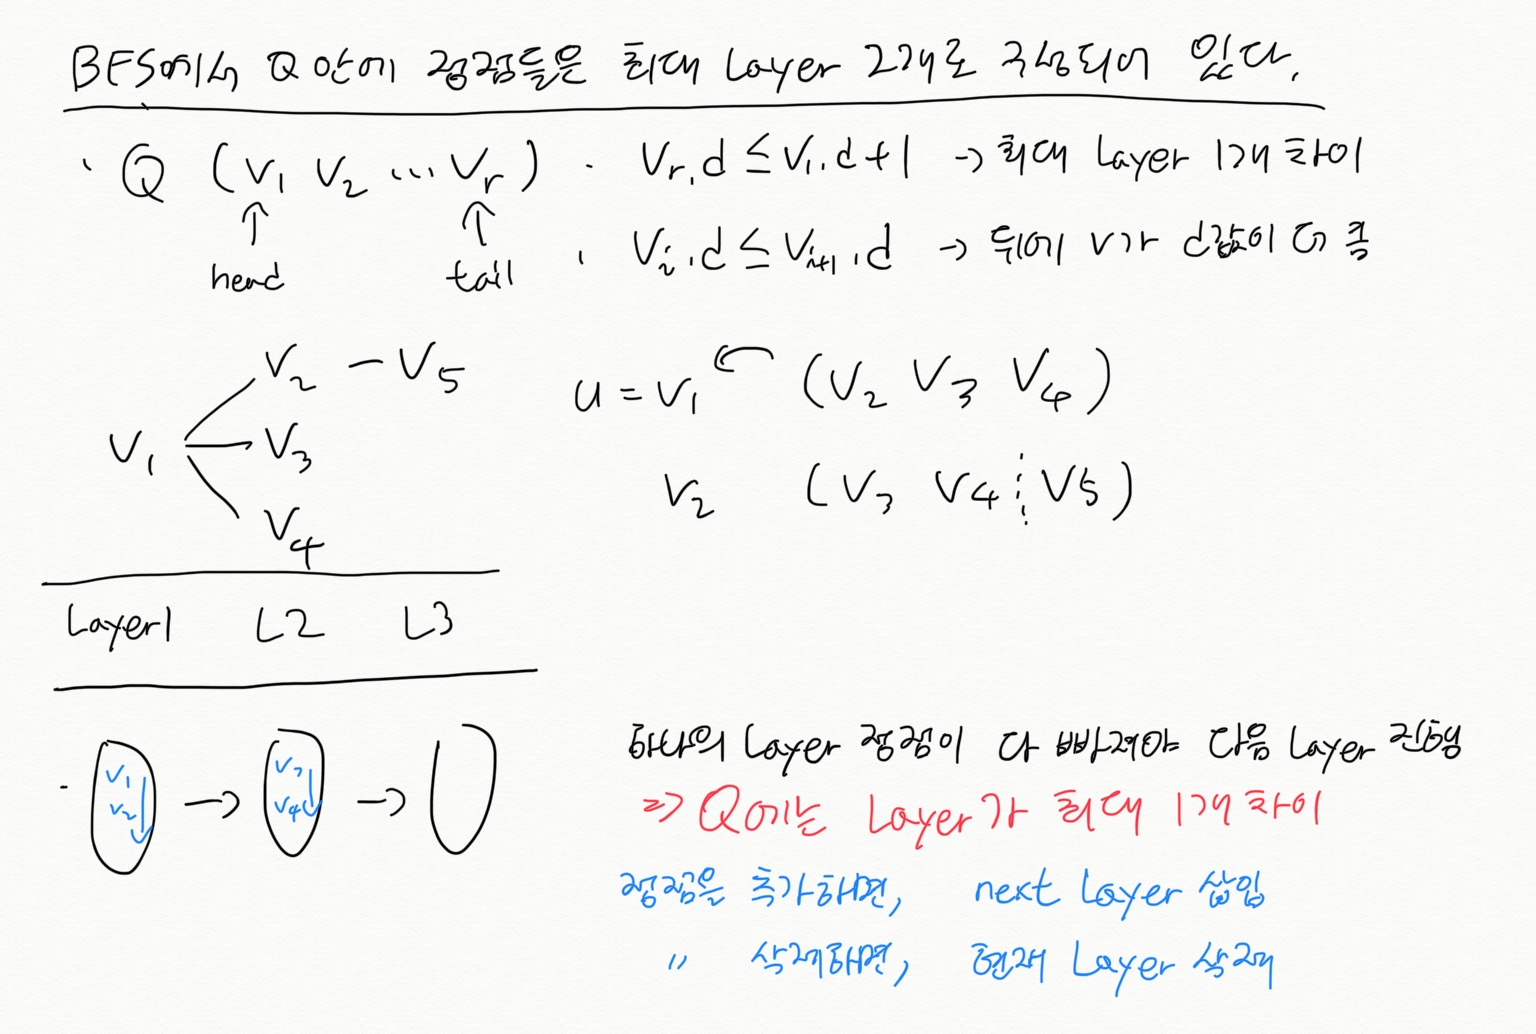 BFS에서 Q 안에 정점들은 최대 Layer 2개로 구성되어 있다.
· Q (V1 V2 ... Vr) · Vr.d ≤ V1.d+1 → 최대 Layer 1개 차이
↑ head ↑ tail
· Vi.d ≤ Vi+1.d → 뒤에 V가 d값이 더 큼
V2 - V5
V1 V3
V4
u = V1 (V2 V3 V4)
V2 (V3 V4 V5)
Layer1 L2 L3
· V1 V2 → V3 V4 →
하나의 Layer 정점이 다 빠져야 다음 Layer 진행
⇒ Q에는 Layer가 최대 1개 차이
정점을 추가하면, next Layer 삽입
〃 삭제하면, 현재 Layer 삭제